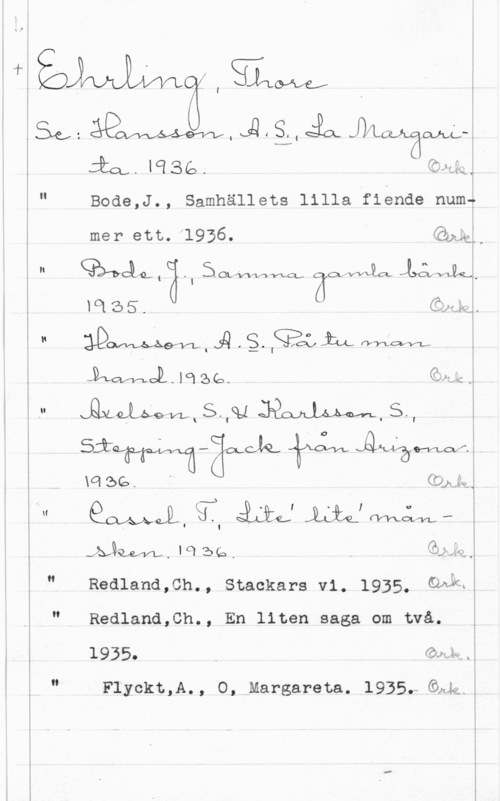 + Ehrling, Thore
Se: Hansson, A.S., La Margari-
ta. 1936. Ork.
" Bode,J., Samhällets lilla fiende num-
mer ett. 1936. Ork.
" Bode, J., Samma gamla bänk.
1935. Ork.
" Hansson, A.S., På tu man
hand. 1936. Ork.
" Axelson, S., & Karlsson, S.,
Stepping-Jack från Arizona.
1936. Ork.
" Cassel, T., Lite' lite' mån-
sken. 1936. Ork.
" Redland,Ch., Stackars vi. 1935. Ork.
" Redland,Ch., En liten saga om två.
1935. Ork.
" Flyckt,A., O, Margareta. 1935. Ork.